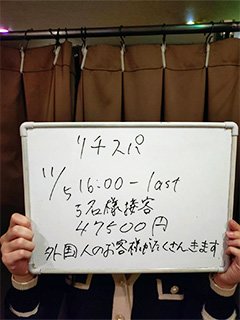 リチスパ
11/5 16:00-last
5名様接客
47500円
外国人のお客様がたくさんきます